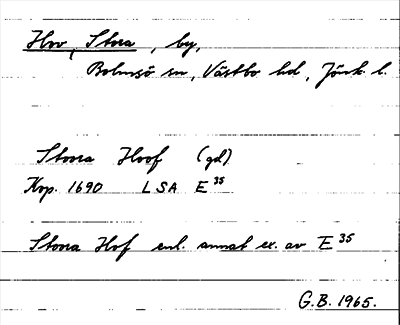 Hov, Stora, by,
Bolmsö sn, Västbo hd, Jönk. l.
Stora Hoof (gd)
Kop. 1690 LSA E 35
Stora Hof enl. annat ex. av E 35
G.B. 1965.